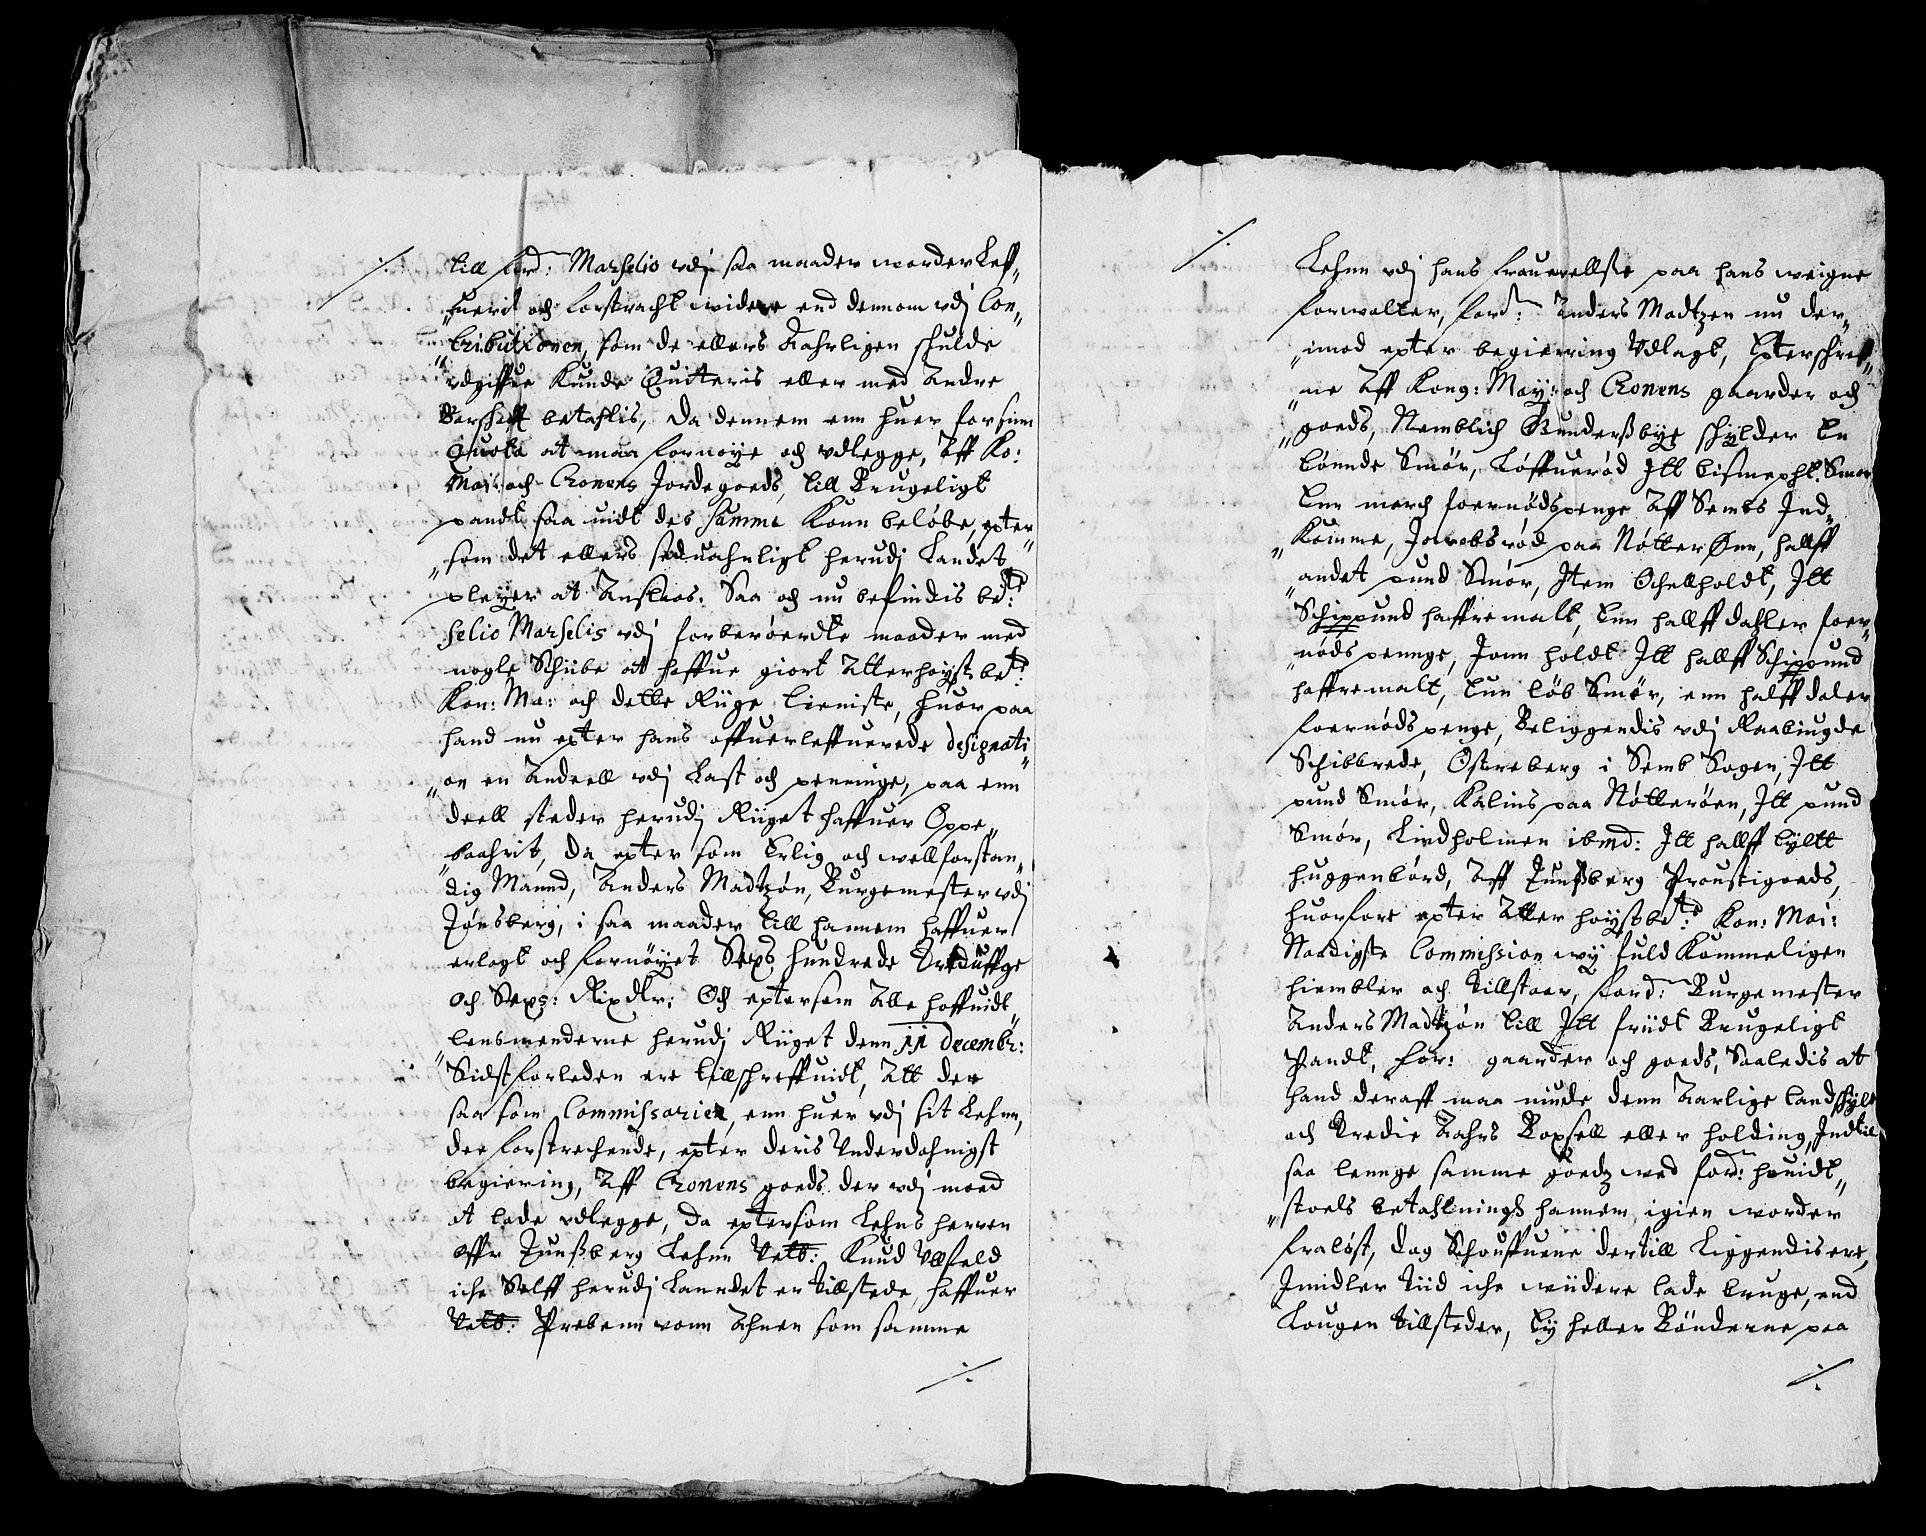 till ford: Marselio vdj saa maader worder Leff„
„fuerit och forstracht widere end dennom vdj Con„
„tributionen, som de ellers Aahrligen schulde
vdgiffue Kunde Quiteris eller med Andre
Varschafft betahlis, da dennem enn huer for sinn
Quota at maa fornøye och vdlegge, Aff Ko:
Mai: och Cronens Jordegoeds, till Brugeligt
pandt saa uidt des Summa Konn beløbe, epter„
„som det ellers seduahnligt herudj Landet
pleyer at Anslaas. Saa och nu befindis bete:
Selio Marselis vdj forberøerdte maader med
nogle Schibe at haffue giort Allerhøystbete:
Kon: Ma: och dette Riige tieniste, huor paa
hand nu epter hans offuerleffuerede designati„
„on en Andeell vdj Last och penninge, paa enn
deell steder herudj Riiget haffuer Oppe„
„baahrit, da epter som Erlig och wellforstan„
dig Mannd, Anders Madtzøn, Burgemester vdj
Tønsberg, i saa maader till hannem haffuer
erlagt och fornøyet Sexs hundrede Tredúffge
och Sexs: Rixdlr: Och eptersom Alle hoffuidt„
„lensmenderne herudj Riiget denn 11 decembr:
Sidstforleden ere tillschreffuidt, Att der
saa som Commissarier, enn huer vdj sit Lehnn,
de forstrechende, epter deris Vnderdahnigst
begiering, Aff Cronens goeds der vdj moed
at lade vdlegge, da eptersom Lehns herren
offr Tunßberg Lehnn Velb: Knud Vllfeld
iche Selff herudj Lanndet er tillstede, haffuer
Velb: Prebenn vonn Ahnen som samme
Lehnn vdj hans frauerellße paa hans weigne
forwalter, ford: Anders Madtzen nu der„
„imod epter begierring Vdlagt, Epterschreff„
„ne Aff Kong: May: och Cronens gaarder och
„goeds, Nemblich Gunderßbye schylder En
tønnde Smør, Løffuerød Itt bismephl. Smør
Enn march foernødspenge Aff Sembs Ind„
„Komme, Jacobsrød paa Nøtter Ønn, hallff
„andet pund Smør, Item Echellholdt, Itt
Schippund haffremalt, Enn hallff daler foer„
„nøds pennge, Jonn holdt Itt hallff Schippund
haffremalt, Enn løb Smør, enn halff daler
foernøds penge, Beliggendis vdj Raabiugde
Schibbrede, Østreberg i Semb Sogen, Itt
pund Smør, Kalins paa Nøtterøen, Itt pund
Smør, Lindholmen ibmd: Itt hallff tyltt
huggenbord, Aff Tunßberg Proustigoeds,
huorfore epter Aller høystbete: Kon: Mai:
Naadigste Commission wy fuld Kommeligen
hiembler och tillstaar, ford: Burgemester
Anders Madtzøn till Itt friidt Brugeligt
Pandt, for: gaarder och goeds, Saaledis at
hand deraff maa niude denn Aarlige landschyld
och tredie Aahrs Boxsell eller holding, Indtill
saa lennge samme goedz med ford: houidt„
„stoels betahlningh hannem igien worder
fraløst, dog Schouffuene dertill Liggendis ere,
Imidler tiid iche wiidere lade bruge, end
Lougen tillsteder, Ey heller Bønderne paa